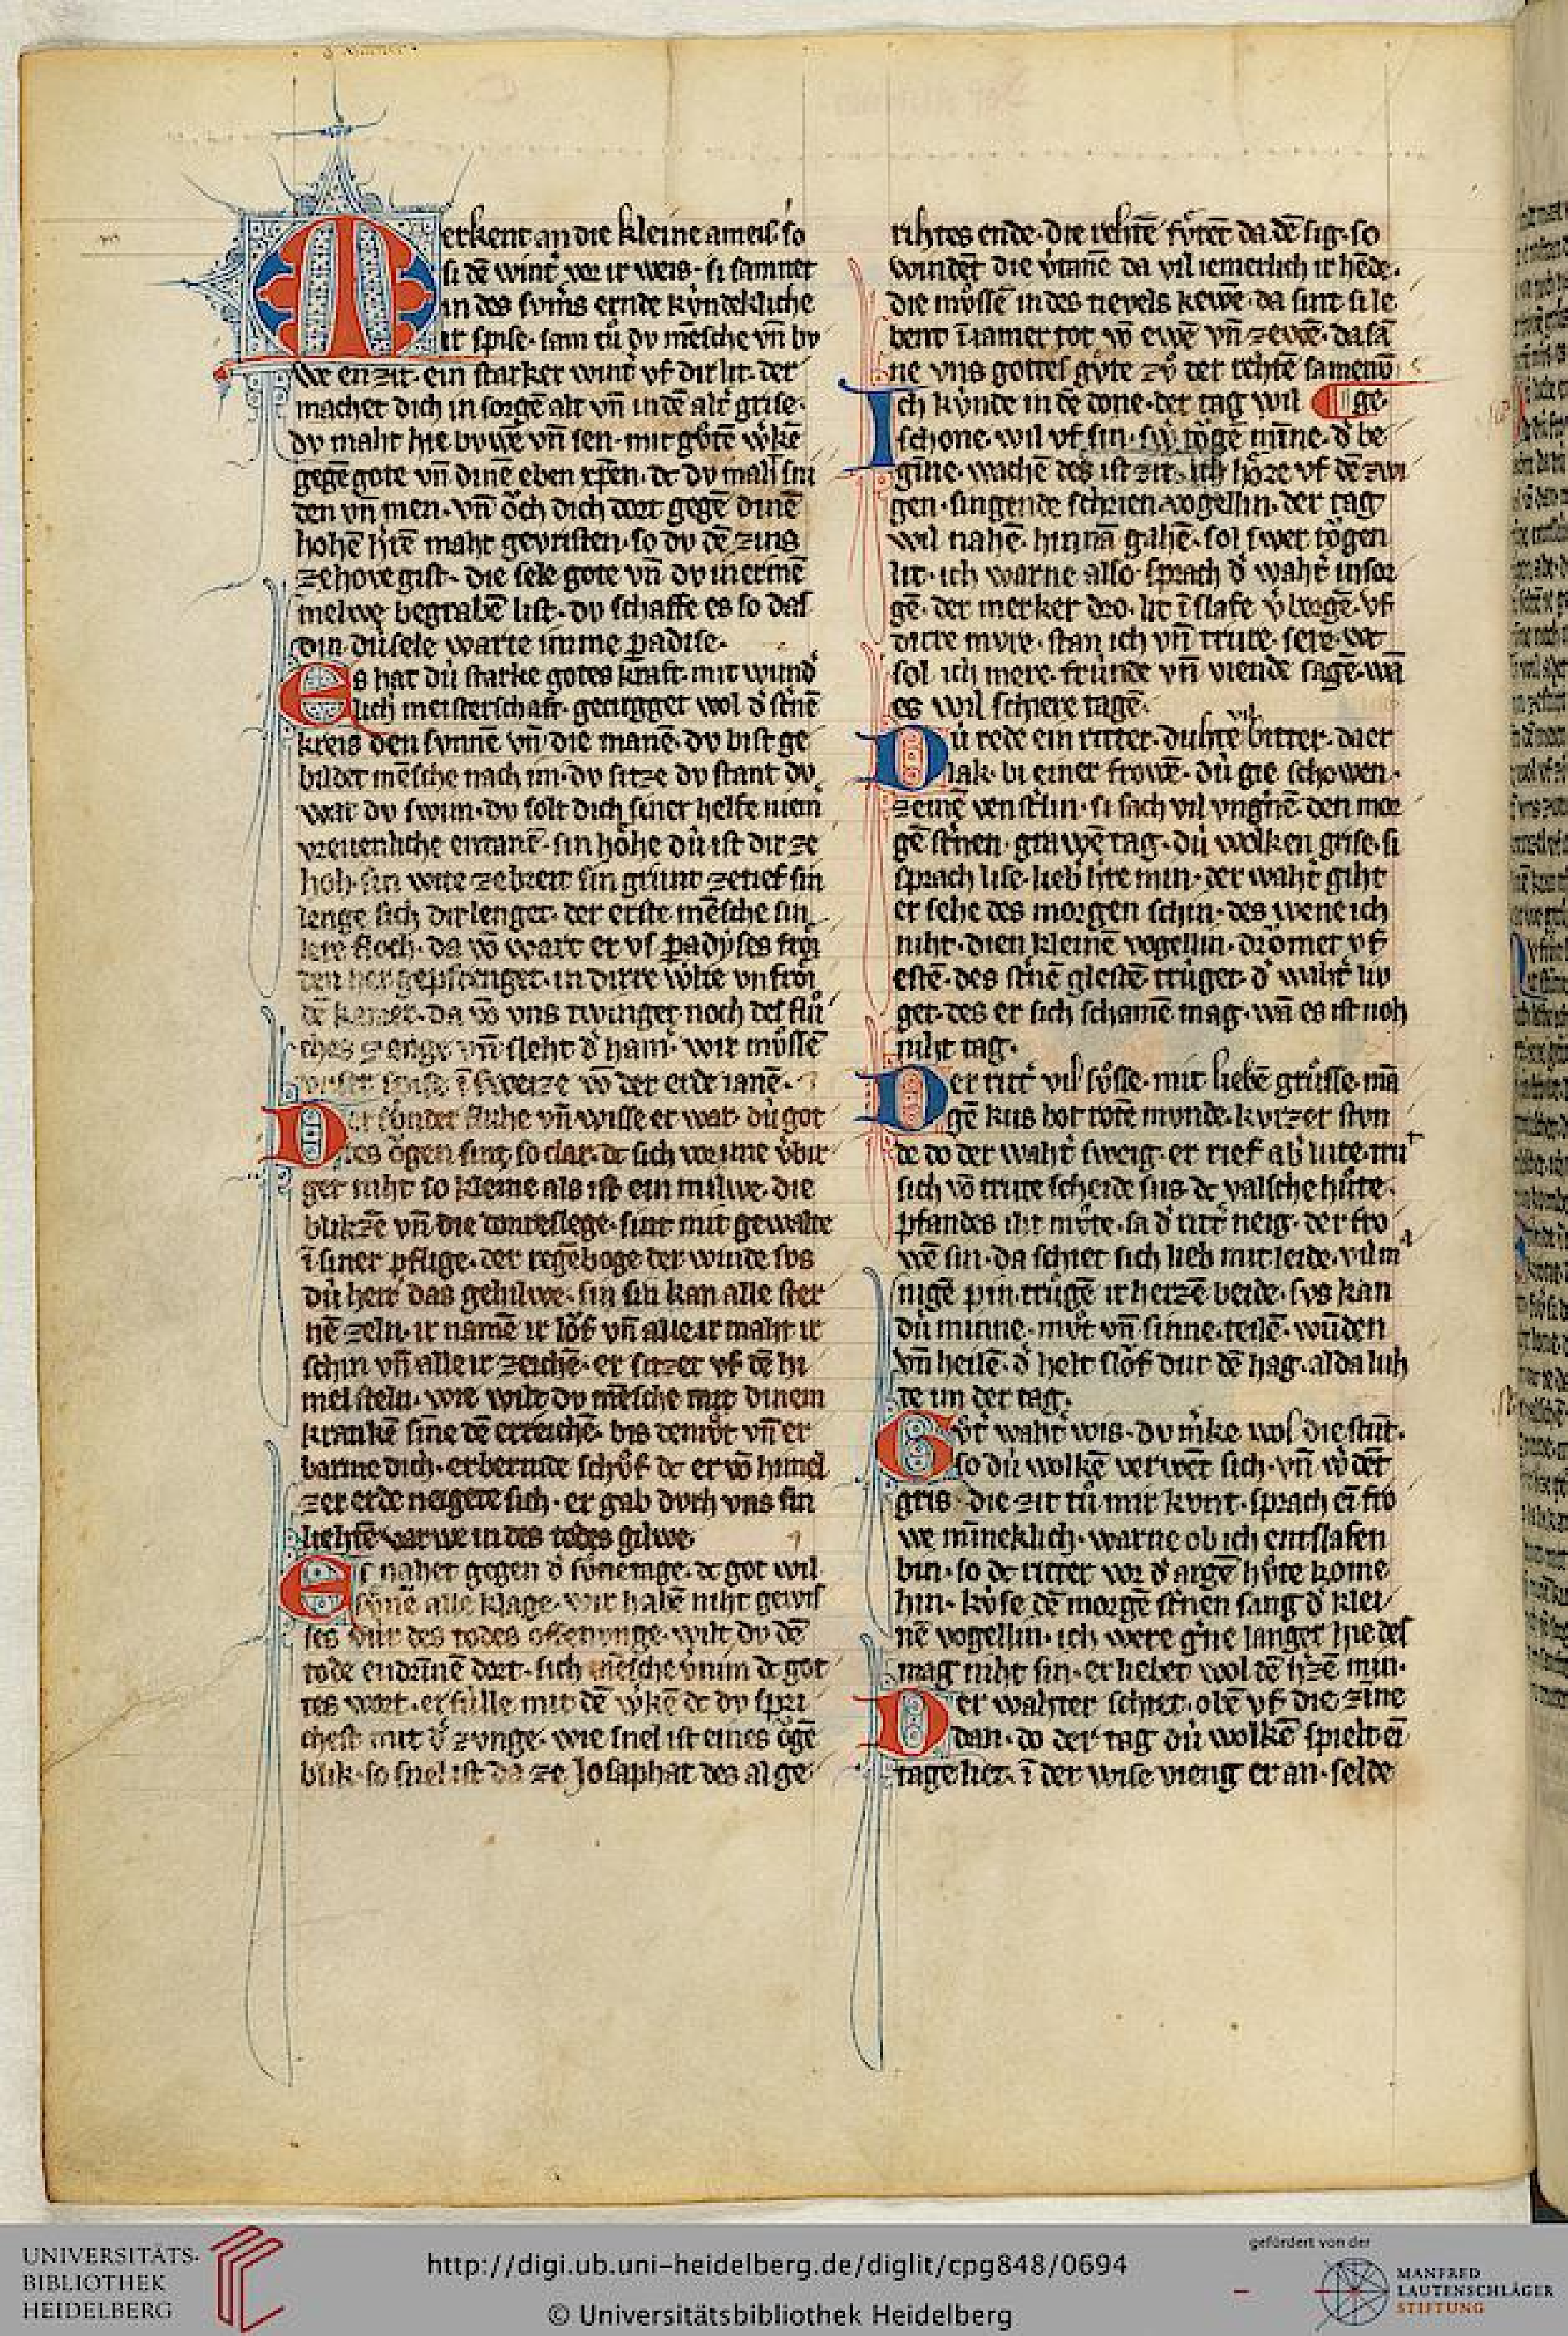 Merkent an die kleine ameis so
si dē wint̾ vor ir weis· si samnet
in des sum̄s ernde kv́ndekliche
ir spise· sam tů dv mēsche vn̄ bv
we en zit· ein starker wint̾ vf dir lit· der
machet dich in sorgē alt vn̄ in dē alt̾ grise·
dv maht hie bvwē vn̄ sen· mit gůtē w̾kē
gegē gote vn̄ dinē eben xp̄en· dc dv maht sni
den vn̄ men· vn̄ ŏch dich dort gegē dinē
hohē h̾rē maht gevristen· so dv dē zins
ze hove gist· die sele gote vn̄ dv in ermē
melwe begrabē list· dv schaffe es so das
din dú sele warte imme p̄adise·
Es hat dú starke gotes kraft· mit wund̾
lich meisterschaft· gecirgget wol d̾ st̾nē
kreis den sunnē vn̄ die manē· dv bist ge
bildet mēsche nach im· dv sitze dv stant dv
wat dv swim· dv solt dich siner helfe niem̾
vreuenliche entanē· sin hoͤhe dú ist dir ze
hoh· sin wite ze breit sin grunt ze tief sin
lenge sich dir lenget· der erste mēsche sin
lere floch· da vō wart er vs p̄adyses froͤi
den her gepfrenget· in dirre w̾lte vnfroͤi
dē kamer· da vō vns twinget noch des flů
ches zenge vn̄ sleht d̾ ham̾· wir mv́ssē
vnser spise ī sweize vō der erde ianē·
Der sv́nder fliehe vn̄ wisse er war· dú got
tes ŏgen sint so clar· dc sich vor ime v̾bir
get niht so kleine als ist ein milwe· die
blikzē vn̄ die donreslege· sint mit gewalte
ī siner pflige· der regēboge der winde sus
dú heir das gehilwe· sin sin kan alle ster
nē zeln· ir namē ir lŏf vn̄ alle ir maht ir
schin vn̄ alle ir zeichē· er sitzet vf dē hi
mel steln· wie wilt dv mēsche mit dinem
krankē sinē dē erreichē· bis demůt vn̄ er
barme dich· erbermde schůf dc er vō himel
zer erde neigete sich· er gab dvrh vns sin
liehtē varwe in des todes gilwe·
Es nahet gegen d̾ sůnetage· dc got wil
sv́nē alle klage· wir habē niht gewis
ses dur des todes offenvnge· wilt dv dē
tode endrinnē dort· sich mēsche v̾nim dc got
tes wort· erfúlle mit dē w̾kē dc dv spri
chest mit d̾ zvnge· wie snel ist eines ŏgē
blik· so snel ist da ze Josaphat des al ge
rihtes ende· die rehtē fůrēt da dē sig· so
windēt die v̾tanē da vil iemerlich ir hēde·
die mv́ssē in des tievels kewē· da sint si le
bent ī iamer tot vō ewē vn̄ ze ewē· da sā
ne vns gottes gúte zů der rehtē samenv̄
Ich kúnde in dē done· der tag wil ge
schone· wil vf sin· sw̾ tŏgē minne· d̾ be
gīne· wachē des ist zit· ich hoͤre vf dē zwi
gen· singende schrien vogellin· der tag
wil nahē· hinnā gahē· sol swer tŏgen
lit· ich warne also sprach d̾ waht̾ in sor
gē· der merker dro· lit ī slafe v̾borgē· vf
dirre mvre· stan ich vn̄ trure· sere· wc
sol ich mere· frúnde vn̄ viende sagē· wā
es wil schiere tagē·
Dú rede ein ritter· duhte vil bitter· da er
lak· bi einer frowē· dú gie schowen·
ze einē venst̾lin· si sach vil vng̾nē· den mor
gē st̾nen· grawē tag· dú wolken grise· si
sprach lise· lieb h̾re min· der waht̾ giht
er sehe des morgen schin· des wene ich
niht· dien kleinē vogellin· drŏmet vf
estē· des st̾nē glestē trúget· d̾ waht̾ lúv
get· des er sich schamē mag· wā es ist noh
niht tag·
Der ritt̾ vil sůsse· mit liebē grůsse· mā
gē kus bot rotē munde· kvrzer stvn
de do der waht̾ sweig· er rief ab̾ lute· trut
sich vō trute scheide sus· dc valsche hůte·
pfandes iht můte· sa d̾ ritt̾ neig· der fro
wē sin· da schiet sich lieb mit leide· vil ma
nigē pin· trůgē ir herzē beide· sus kan
dú minne· můt vn̄ sinne· teilē· wūden
vn̄ heilē· d̾ helt slŏf dur dē hag· alda luh
te im der tag·
Gůt waht̾ wis· dv m̾ke wol die stūt·
so dú wolkē verwēt sich· vn̄ w̾dēt
gris· die zit tů mir kvnt· sprach eī fro
we mīneklich· warne ob ich entslafen
bin· so dc ritter vor d̾ argē hůte kome
hin· kúse dē morgē st̾nen sang d̾ klei
nē vogellin· ich were g̾ne langer hie des
mag niht sin· er liebet wol dē h̾zē min·
Der wahter schiet· obē vf die zīne
dan· do der tag dú wolkē spielt eī
tageliet· ī der wise vieng er an· selde
UNIVERSITÄTS-
BIBLIOTHEK
HEIDELBERG
http://digi.ub.uni-heidelberg.de/diglit/cpg848/0694
© Universitätsbibliothek Heidelberg
gefördert von der
MANFRED
LAUTENSCHLÄGER
STIFTUNG